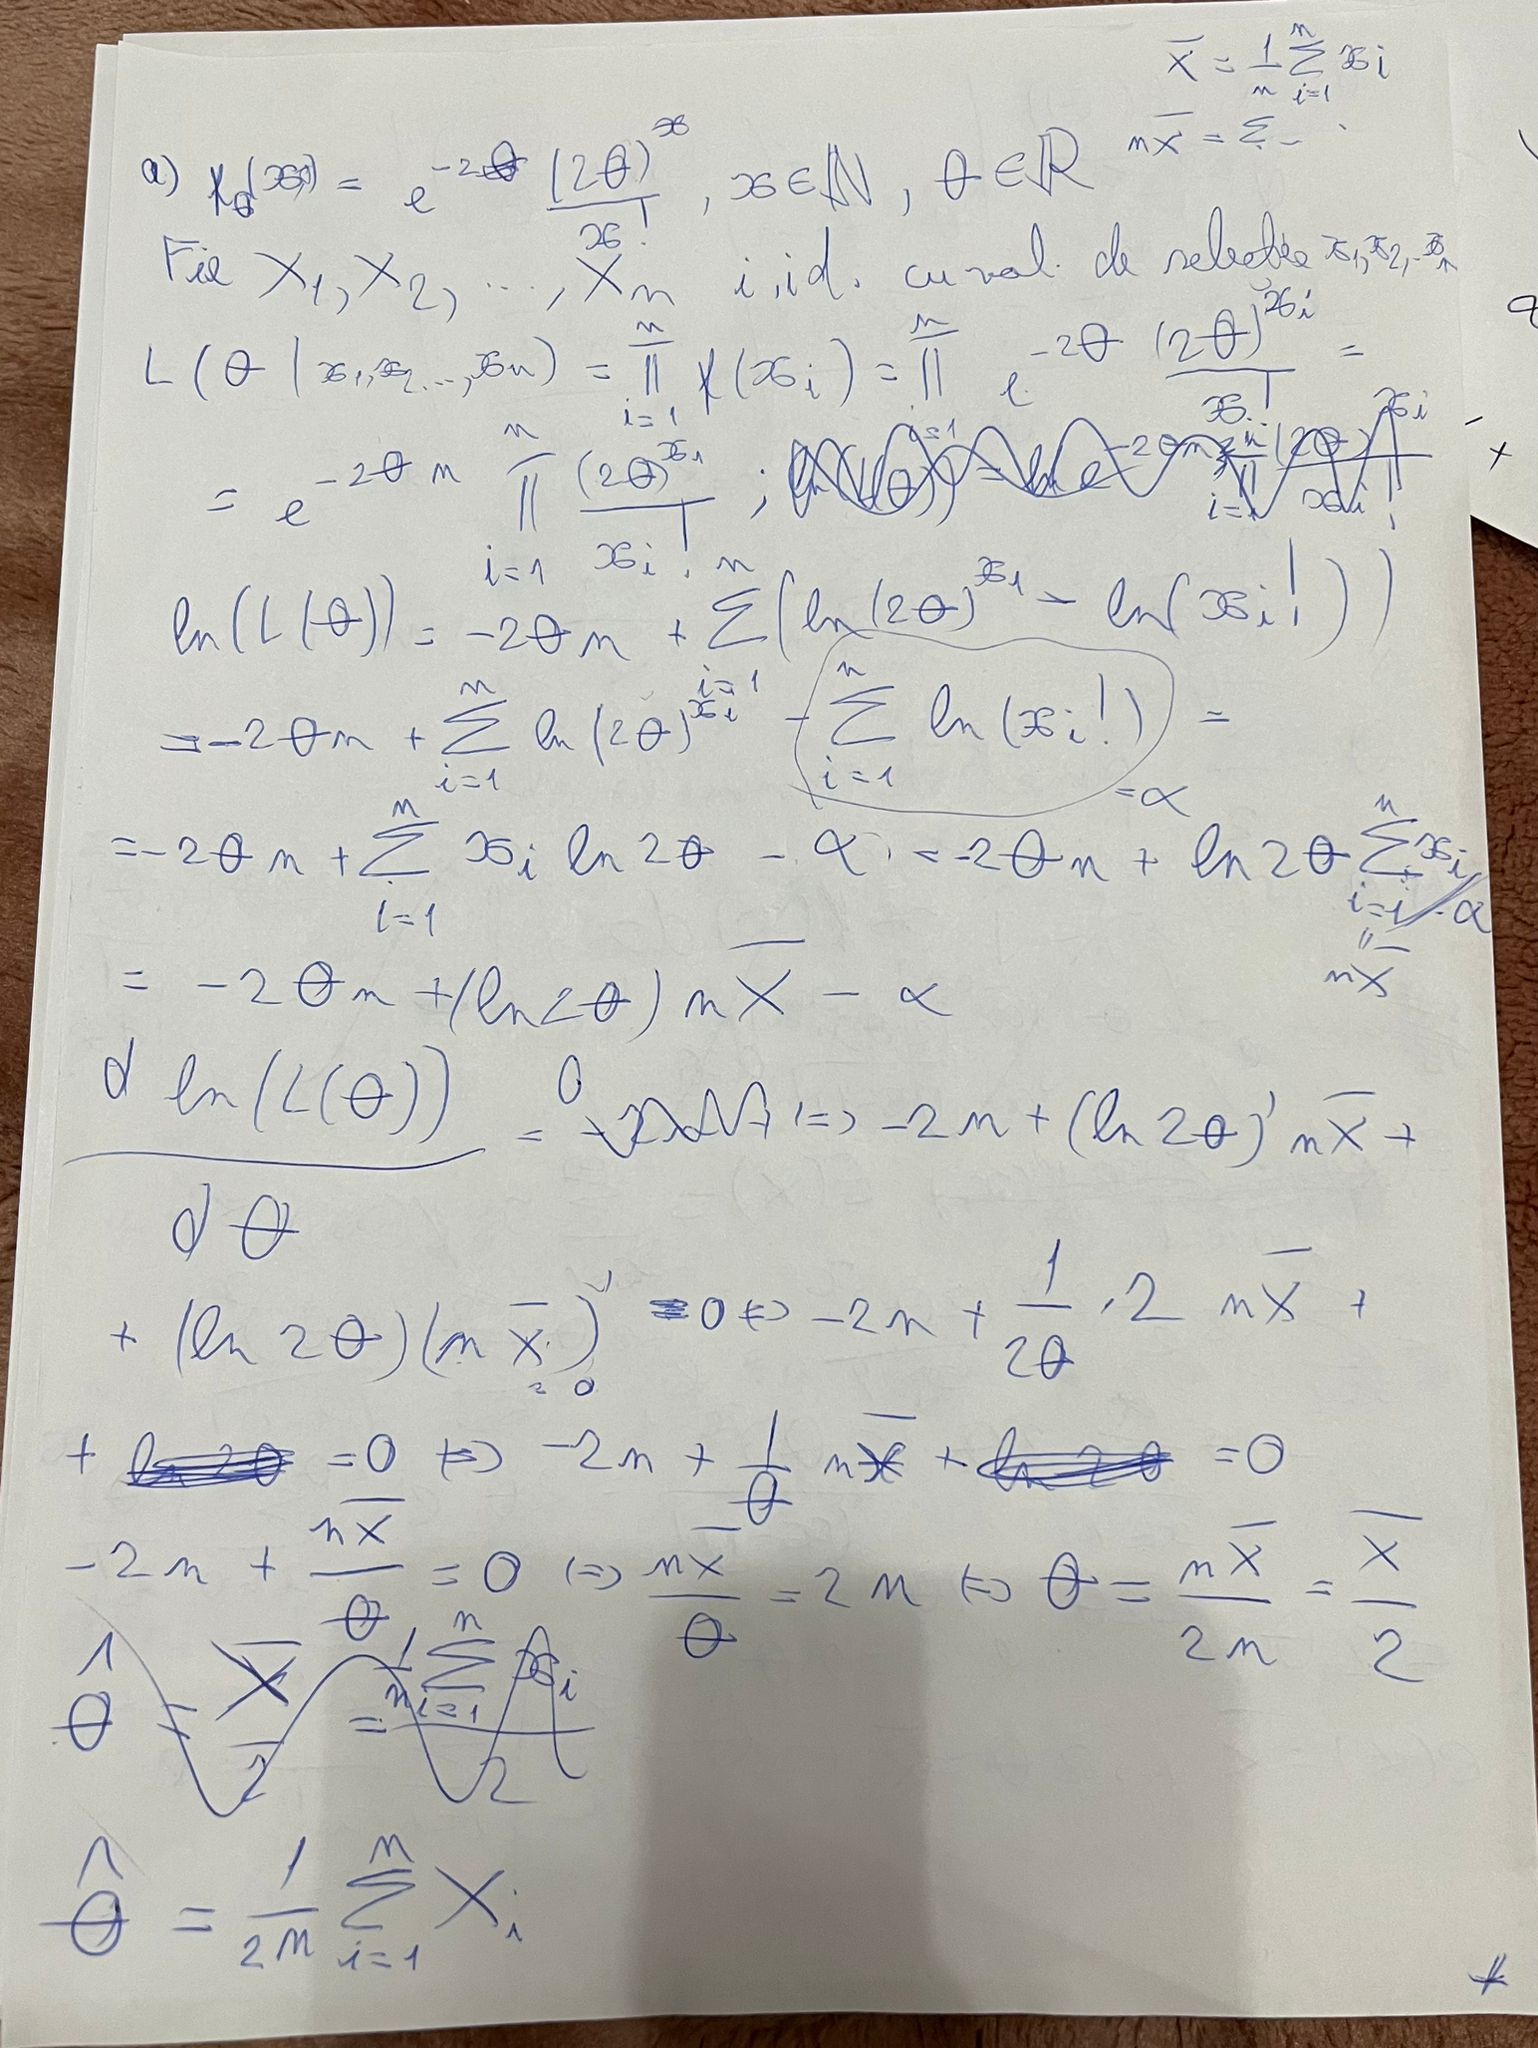 x̄ = 1/n Σ_{i=1}^{n} x_i
n x̄ = Σ -
a) f_θ(x) = e^{-2θ} (2θ)^x / x! , x ∈ ℕ, θ ∈ ℝ
Fie X_1, X_2, ..., X_n i.id. cu val. de selecție x_1, x_2, .. x_n
L(θ | x_1, x_2 ..., x_n) = ∏_{i=1}^{n} f(x_i) = ∏_{i=1}^{n} e^{-2θ} (2θ)^{x_i} / x_i! =
= e^{-2θn} ∏_{i=1}^{n} (2θ)^{x_i} / x_i! ;
ln(L(θ)) = -2θn + Σ_{i=1}^{n} (ln(2θ)^{x_i} - ln(x_i!))
= -2θn + Σ_{i=1}^{n} ln(2θ)^{x_i} - Σ_{i=1}^{n} ln(x_i!) =
= α
= -2θn + Σ_{i=1}^{n} x_i ln 2θ - α = -2θn + ln 2θ Σ_{i=i} x_i - α
" n x̄
= -2θn + (ln 2θ) n X̄ - α
d ln(L(θ)) / dθ = 0 (=) -2n + (ln 2θ)' n X̄ +
+ (ln 2θ)(n X̄)' = 0 (=) -2n + 1/2θ · 2 n X̄ +
= 0
+ = 0 (=) -2n + 1/θ n X̄ + = 0
-2n + n X̄ / θ = 0 (=) n X̄ / θ = 2n (=) θ = n X̄ / 2n = X̄ / 2
θ̂ = X̄ / 2 = 1/n Σ_{i=1}^{n} x_i / 2
θ̂ = 1/2n Σ_{i=1}^{n} X_i